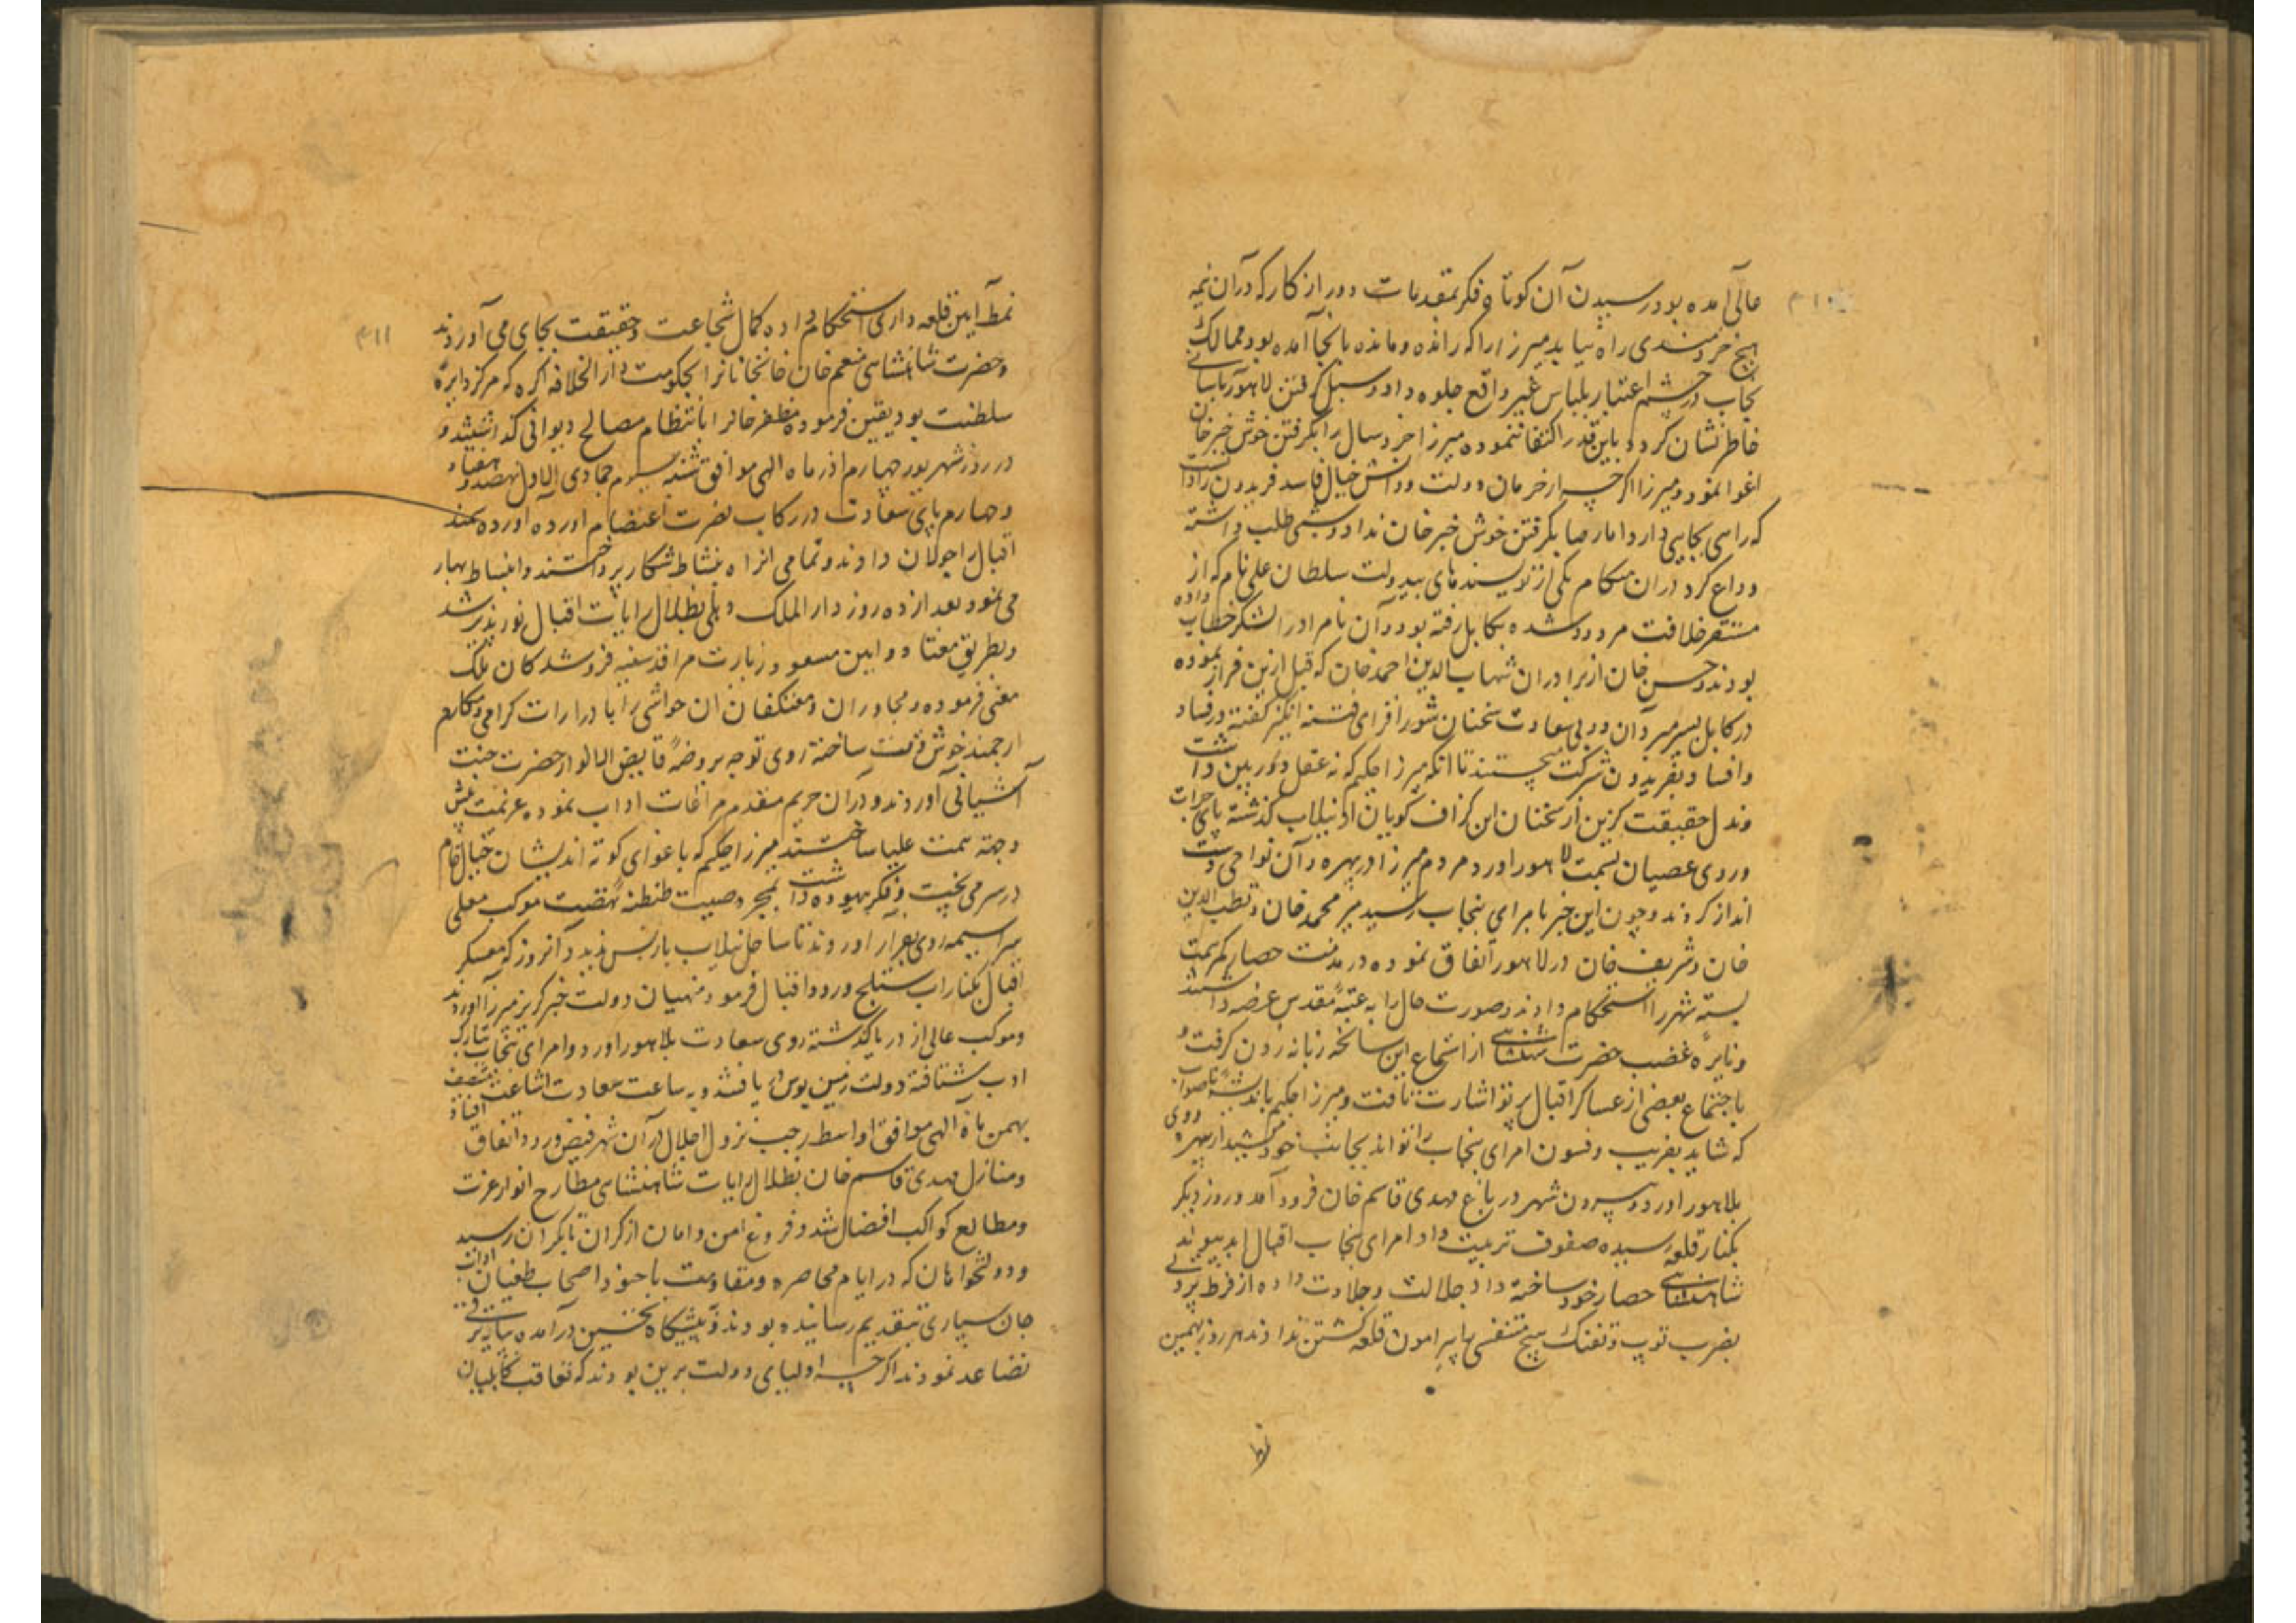 ۴۱۰
عالی آمده بود رسیدن آن کوتاه فکر بمقدمات دور از کار که در آن نیمه
هیچ خردمندی راه نیابد میرزا را که رانده و مانده بانجا آمده بود ممالک
پنجاب در چشم اعتبار بلباس غیر واقع جلوه داد و سبیل گرفتن لاهور باسانی
خاطرنشان کرد و باین قدر اکتفا ننموده میرزا خردسال را بگرفتن خوش خبر خان
اغوا نمود و میرزا اگرچه از حرمان دولت و دانش خیال فاسد فریدون را دانست
که راسی بجایی دارد اما رضا بگرفتن خوش خبر خان نداد و شبی طلب داشته
وداع کرد در ان هنگام یکی از نویسندهای بیدولت سلطان علی نام که از
مستقر خلافت مردود شده بکابل رفته بود و آن نامراد را لشکر خطاب داده
بودند و حسن خان از برادران شهاب الدین احمد خان که قبل ازین فرار نموده
در کابل بسر میبرد آن دو بی سعادت سخنان شورافزای فتنه انگیز گفته در فساد
و افساد بفریدون شرکت میجستند تا انکه میرزا حکیم که نه عقل دوربین داشت
و نه دل حقیقت گزین از سخنان این گزاف گویان از نیلاب گذشته پای جرات
و روی عصیان بسمت لاهور اورد و مردم میرزا در بهره و آن نواحی دست
انداز کردند و چون این خبر بامرای پنجاب رسید میر محمد خان و قطب الدین
خان و شریف خان در لاهور اتفاق نموده در مدت حصار کمر همت
بسته شهر را استحکام دادند و صورت حال را به عتبه مقدس عرضه داشتند
و نایره غضب حضرت شاهنشاهی از استماع این سانحه زبانه زدن گرفت و
باجتماع بعضی از عساکر اقبال پرتو اشارت تافت و میرزا حکیم باندیشه ناصواب
که شاید بفریب و فسون امرای پنجاب را تواند بجانب خود کشید از بهره روی
بلاهور اورد و بیرون شهر در باغ مهدی قاسم خان فرود آمد و روز دیگر
بکنار قلعه رسیده صفوف ترتیب داد و امرای پنجاب اقبال ابد پیوند
شاهنشاهی حصار خود ساخته داد جلالت و جلادت داده از فرط پردلی
بضرب توپ و تفنگ هیچ متنفسی را پیرامون قلعه گشتن ندادند هر روز بهمین
نمط
۴۱۱
نمط آیین قلعه داری استحکام داده کمال شجاعت و حقیقت بجای می آوردند
و حضرت شاهنشاهی منعم خان خانخانان را بحکومت دار الخلافه اگره که مرکز دایره
سلطنت بود یقین فرموده مظفر خان را بانتظام مصالح دیوانی گذاشتند و
در روز شهریور چهارم اذر ماه الهی موافق شنبه سیوم جمادی الاول نهصد و هفتاد
و چهارم پای سعادت در رکاب نصرت اعتصام اورده سمند
اقبال را جولان دادند و تمامی انراه بنشاط شکار پرداختند و انبساط بهار
می نمود بعد از ده روز دار الملک دهلی بظلال رایات اقبال نورپذیر شد
و بطریق معتاد و ایین مسعود زیارت مراقد سنیه فروشدگان ملک
معنی فرموده و مجاوران و معتکفان ان حواشی را با درارات گرامی و مکارم
ارجمند خوش وقت ساخته روی توجه بروضه فایض الانوار حضرت جنت
آشیانی آوردند و در آن حریم مقدم مراعات اداب نموده عزیمت پیش
وجه همت علیا ساختند میرزا حکیم که باغوای کوته اندیشان خیال خام
در سر می پخت و فکر بیهوده داشت بمجرد صیت طنطنه نهضت موکب معلی
سراسیمه روی بفرار اوردند تا ساحل نیلاب باز پس ندید و آنروز که معسکر
اقبال بکنار اب ستلج ورود اقبال فرمود منهیان دولت خبر گریز میرزا آوردند
و موکب عالی از دریا گذشته روی سعادت بلاهور اورد و امرای پنجاب تبارک
ادب شتافته دولت زمین بوس دریافتند و به ساعت سعادت اشاعت منتصف
بهمن ماه الهی موافق اواسط رجب نزول اجلال در آن شهر فیض ورود اتفاق افتاد
و منازل مهدی قاسم خان بظلال رایات شاهنشاهی مطارح انوار عزت
و مطالع کواکب افضال شد و فروغ امن و امان از کران تا بکران رسید
و دولتخواهان که در ایام محاصره و مقاومت با جنود اصحاب طغیان اداب
جان سپاری بتقدیم رسانیده بودند در پیشگاه تحسین درآمده بپایه ترقی
تصاعد نمودند اگرچه اولیای دولت برین بودند که تعاقب کابلیان